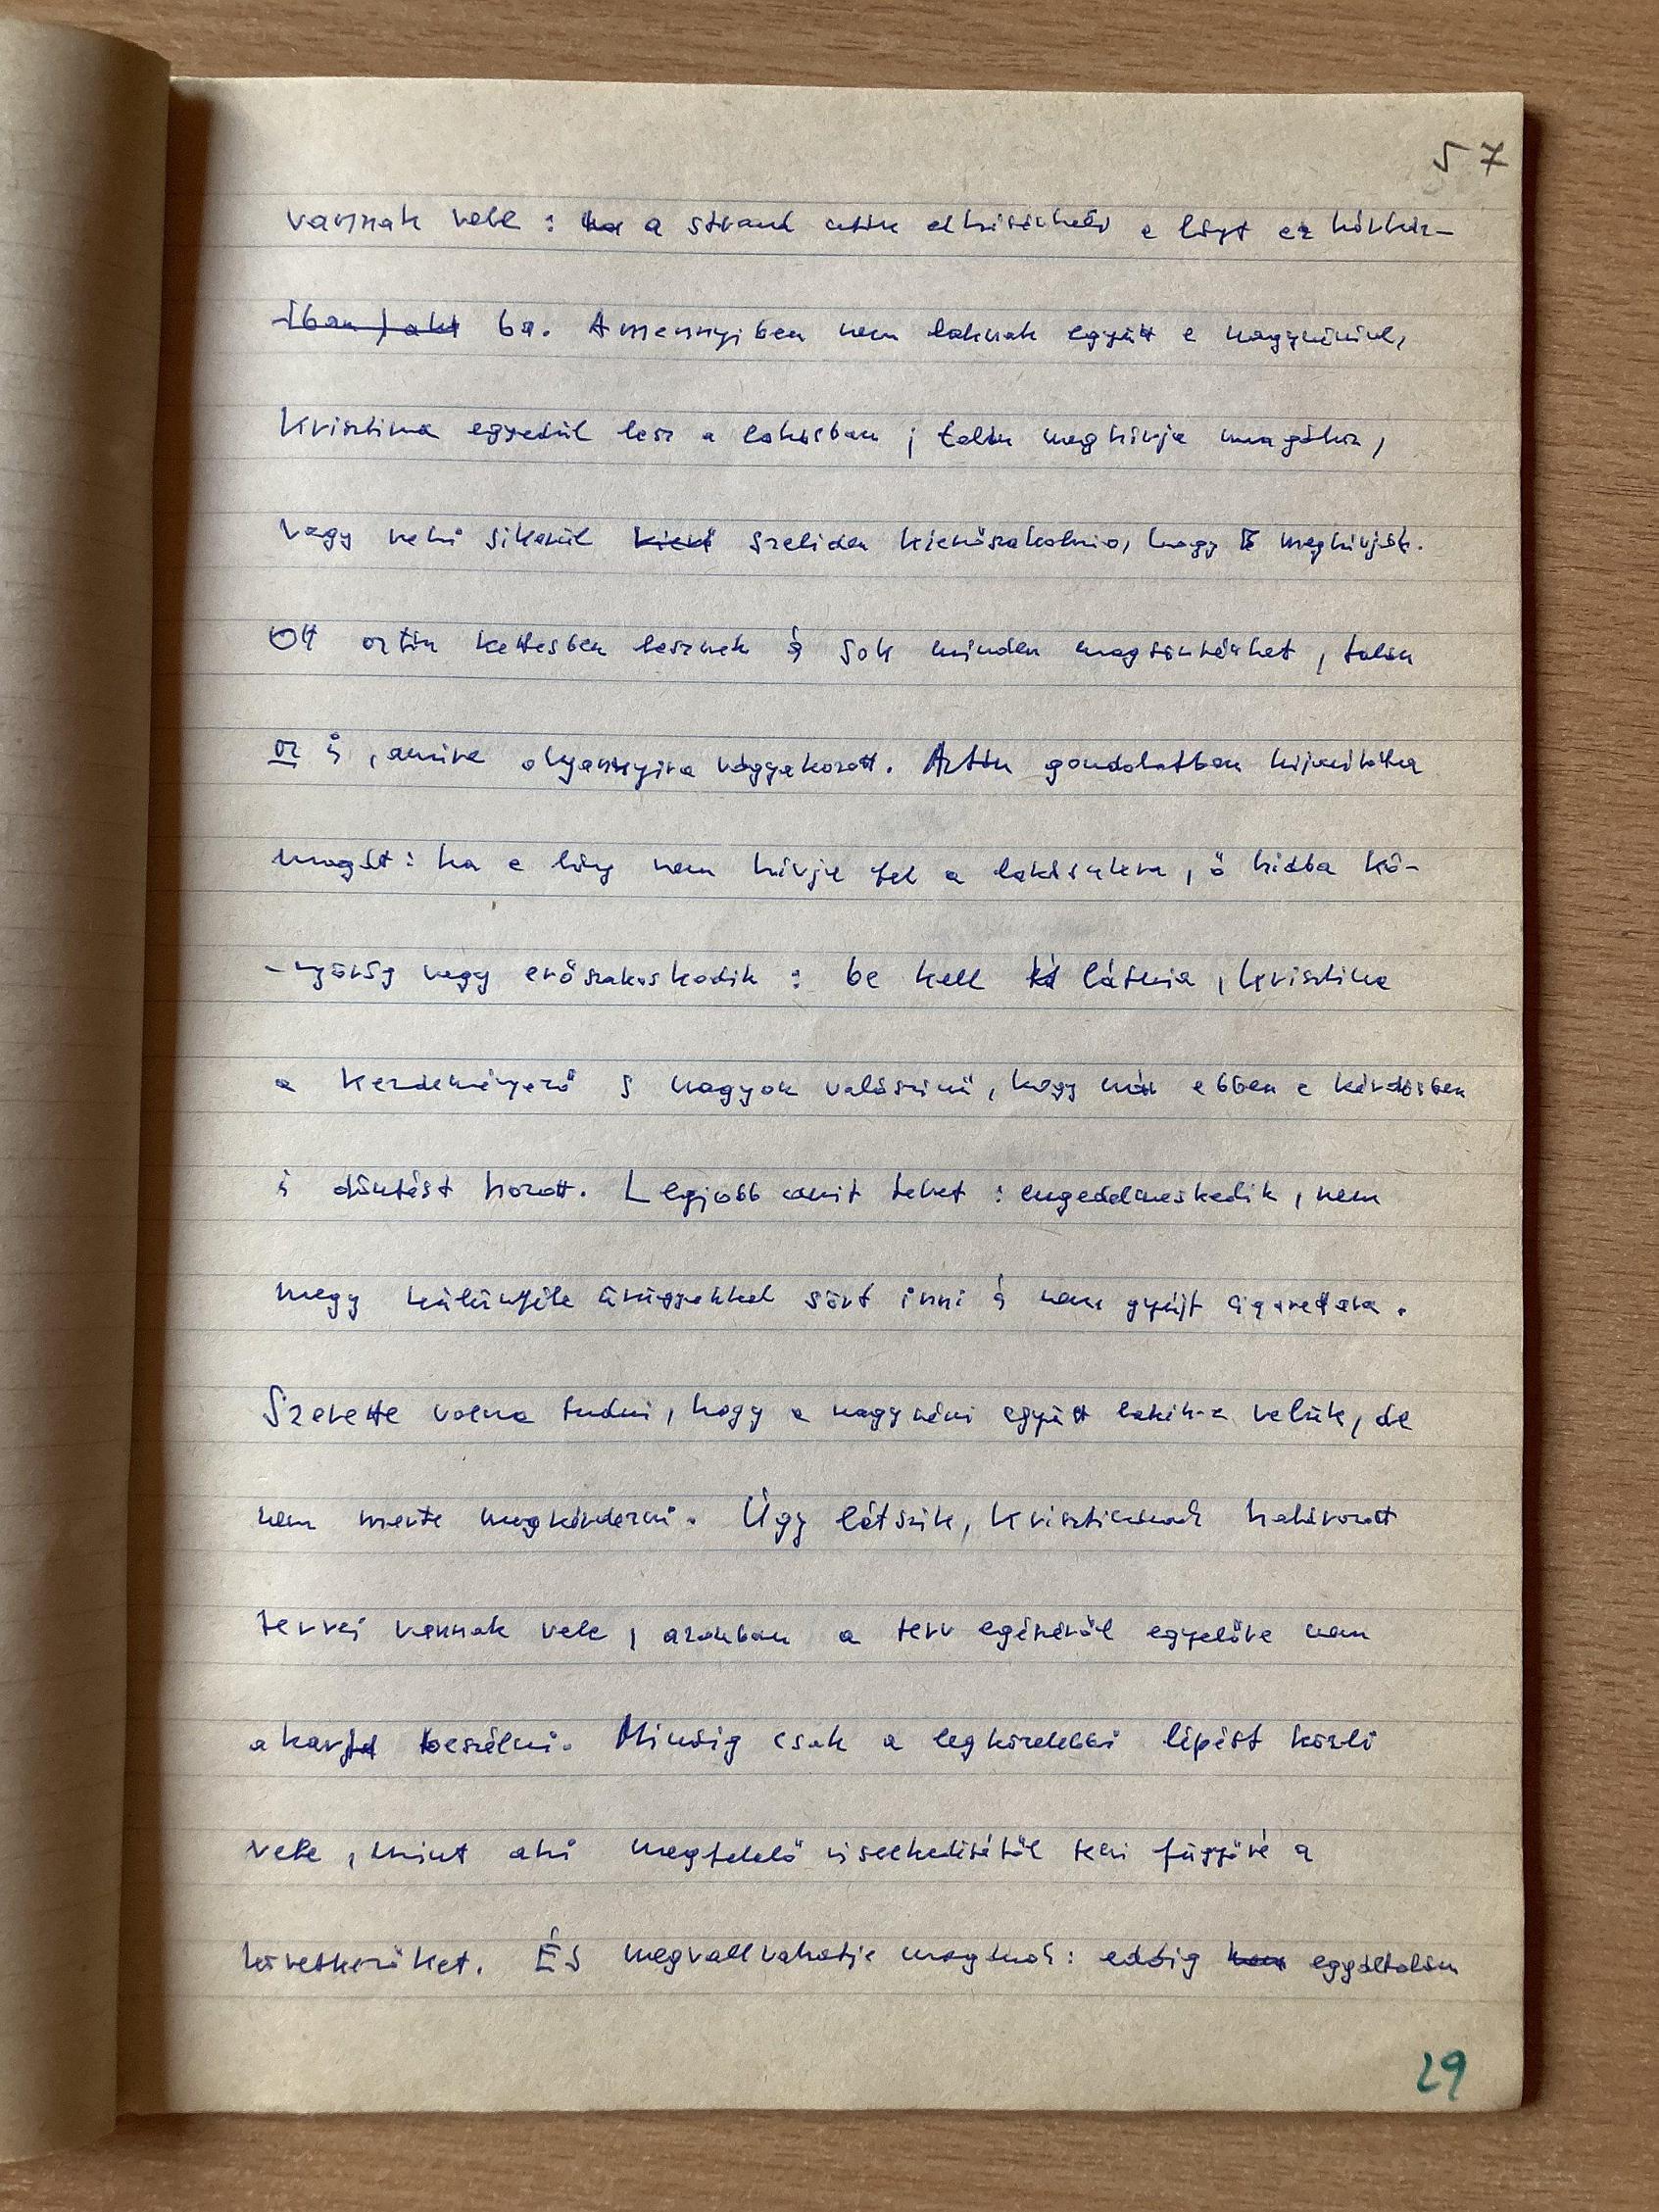 57
vannak vele : ha a strand után elkísérheti a lányt a
ba. Amennyiben nem laknak együtt a nagynénivel,
Krisztina egyedül lesz a lakásban ; talán meghívja magához,
vagy neki sikerül kierő szeliden kierőszakolnia, hogy meghívják.
Ott aztán kettesben lesznek s sok minden megtörténhet, talán
az is, amire olyannyira vágyakozott. Aztán gondolatban kijavította
magát : ha a lány nem hívja fel a lakásukra, ő hiába kö-
-nyörög vagy erőszakoskodik : be kell látnia, Krisztina
a kezdeményező s nagyon valószínű, hogy már ebben a kérdésben
is döntést hozott. Legjobb amit tehet : engedelmeskedik, nem
megy különféle ürügyekkel sört inni s nem gyújt cigarettára.
Szerette volna tudni, hogy a nagynéni együtt lakik-e velük, de
nem merte megkérdezni. Úgy látszik, Krisztinának határozott
tervei vannak vele, azonban a terv egészéről egyelőre nem
akar beszélni. Mindig csak a legközelebbi lépést közli
vele, mint aki megfelelő viselkedésétől teszi függővé a
következőket. És megvallhatja magának : eddig egyáltalán
29